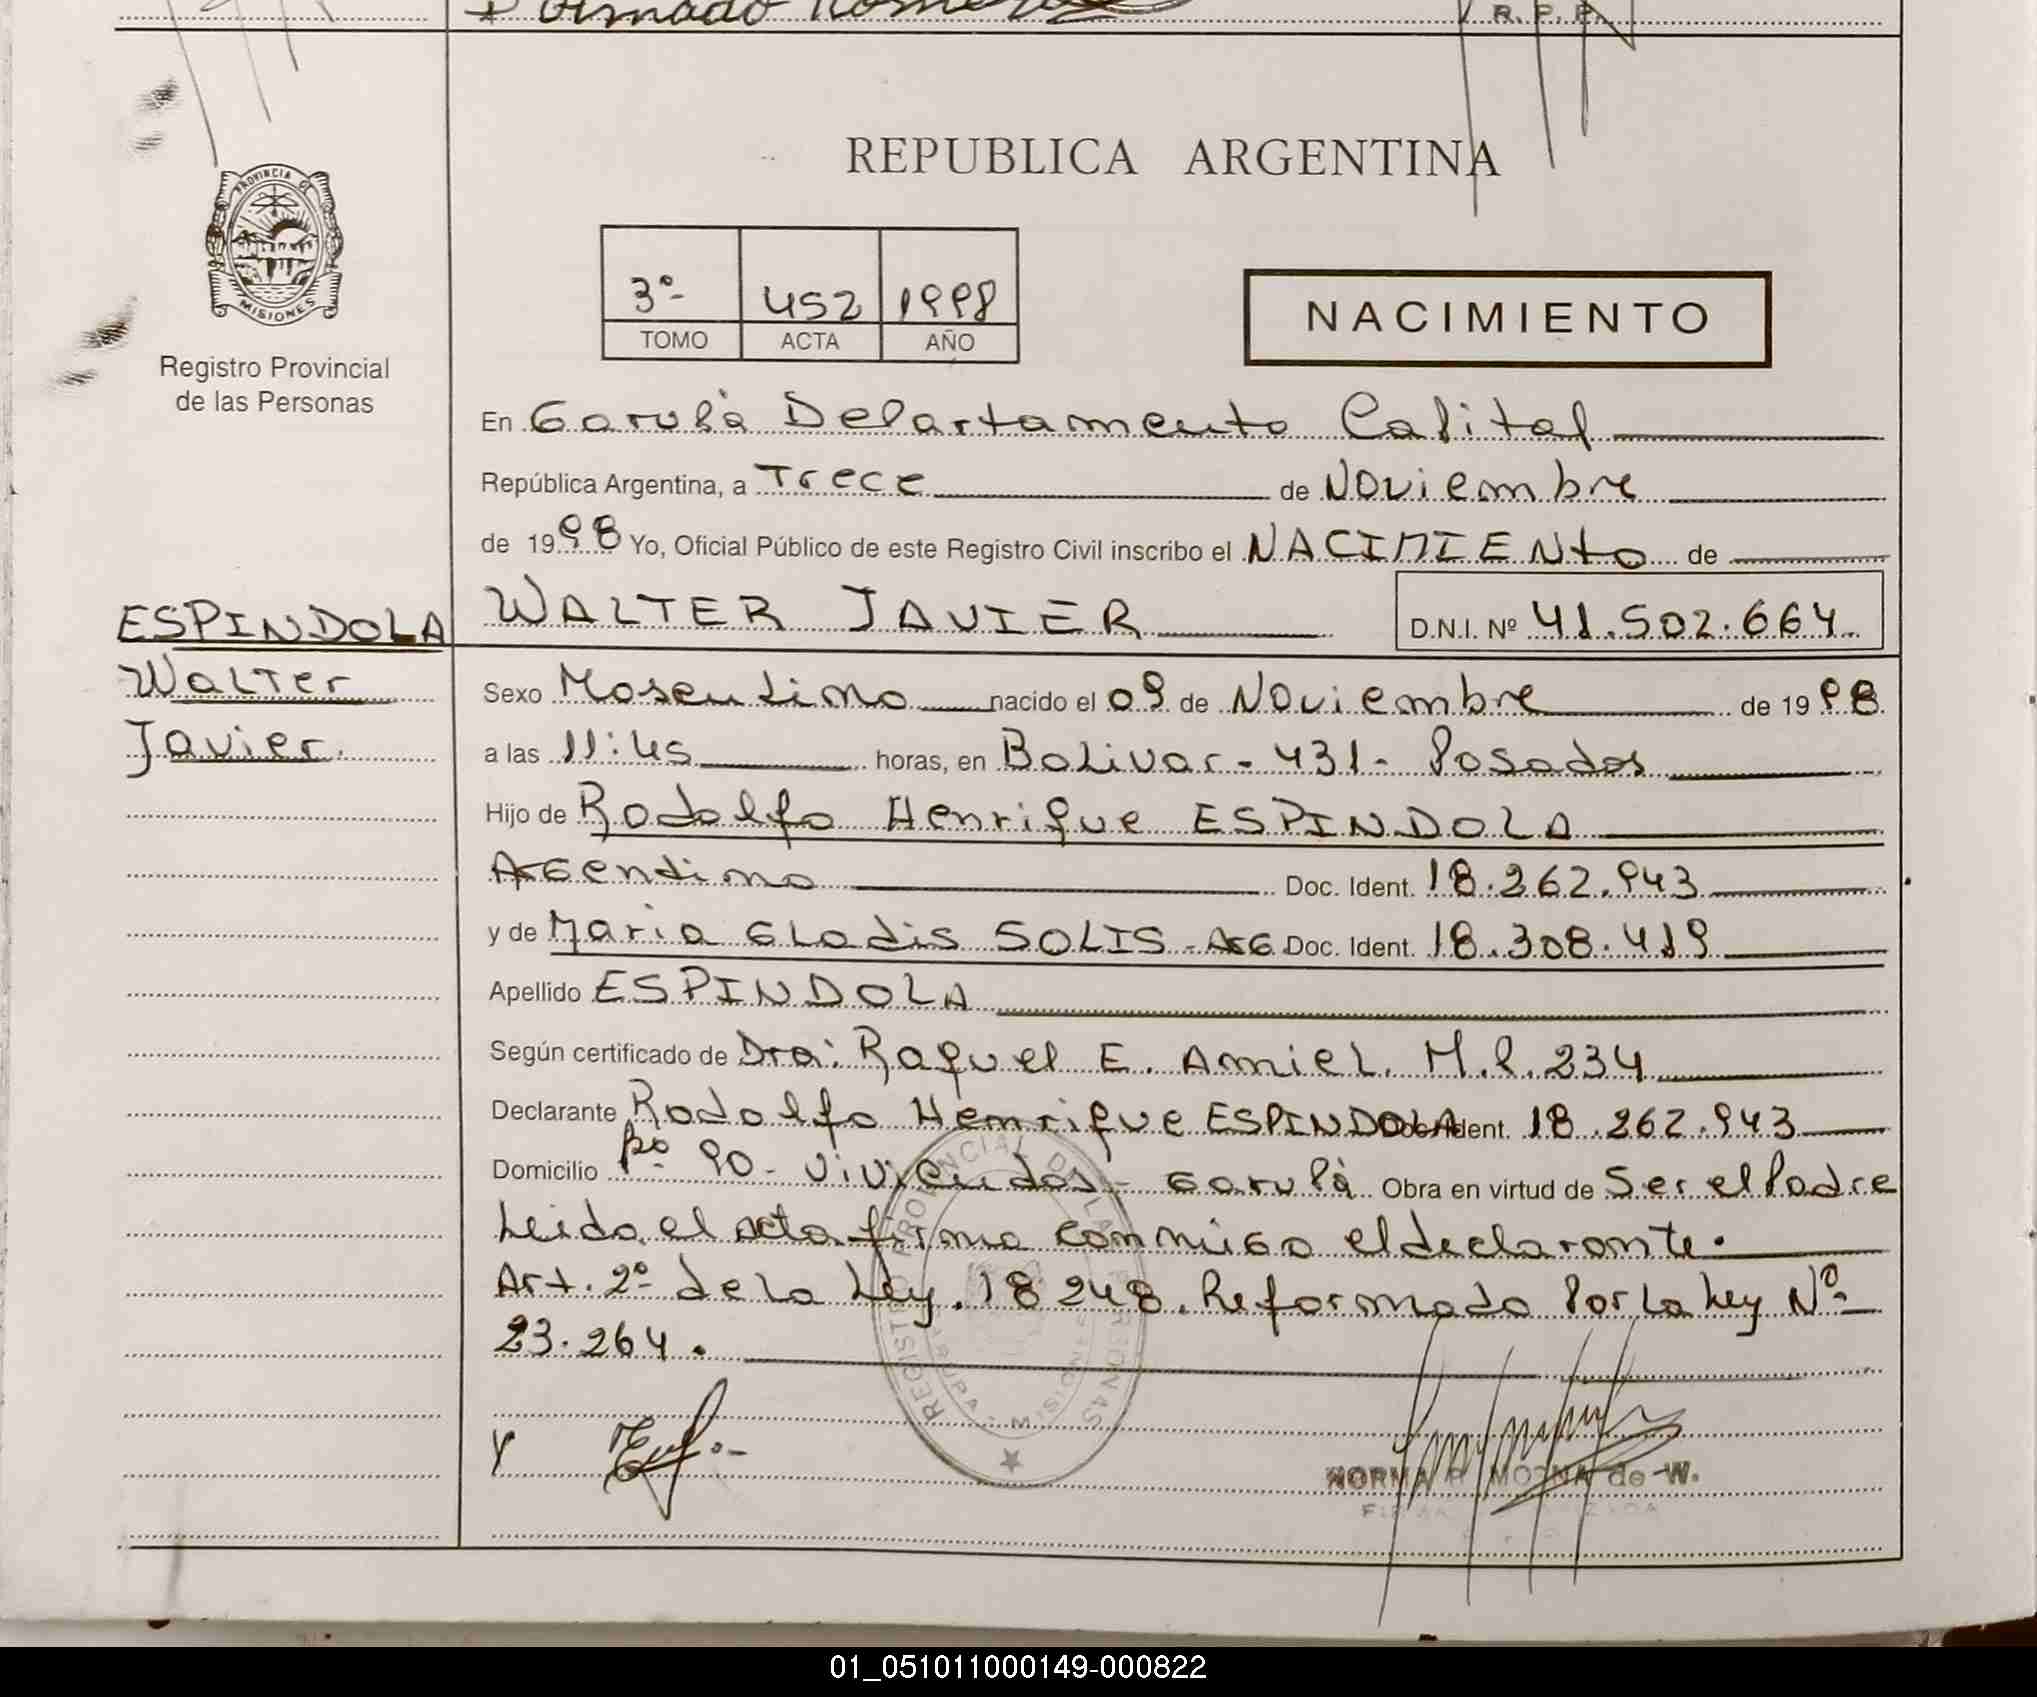 Romero
R. P. P.
PROVINCIA DE
MISIONES
Registro Provincial
de las Personas
REPUBLICA ARGENTINA
3º 452 1998
TOMO ACTA AÑO
NACIMIENTO
En Garupá Departamento Capital
República Argentina, a Trece de Noviembre
de 1998 Yo, Oficial Público de este Registro Civil inscribo el NACIMIENto de
ESPINDOLA
Walter
Javier.
WALTER JAVIER D.N.I. Nº 41.502.664
Sexo Masculino nacido el 09 de Noviembre de 1998
a las 11:45 horas, en Bolivar - 431 - Posadas
Hijo de Rodolfo Henrique ESPINDOLA
Argentino Doc. Ident. 18.262.943
y de Maria Gladis SOLIS - Arg. Doc. Ident. 18.308.419
Apellido ESPINDOLA
Según certificado de Dra: Raquel E. Amiel. M.P. 234
Declarante Rodolfo Henrique ESPINDOLA Doc. Ident. 18.262.943
Domicilio Bº 90 - Viviendas - Garupá Obra en virtud de Ser el Padre
Leida el acta firma conmigo el declarante.
Art. 2º de la Ley. 18248. Reformado Por la Ley Nº
23.264.
REGISTRO PROVINCIAL DE LAS PERSONAS
GARUPA - MISIONES
NORMA de W.
01_051011000149-000822